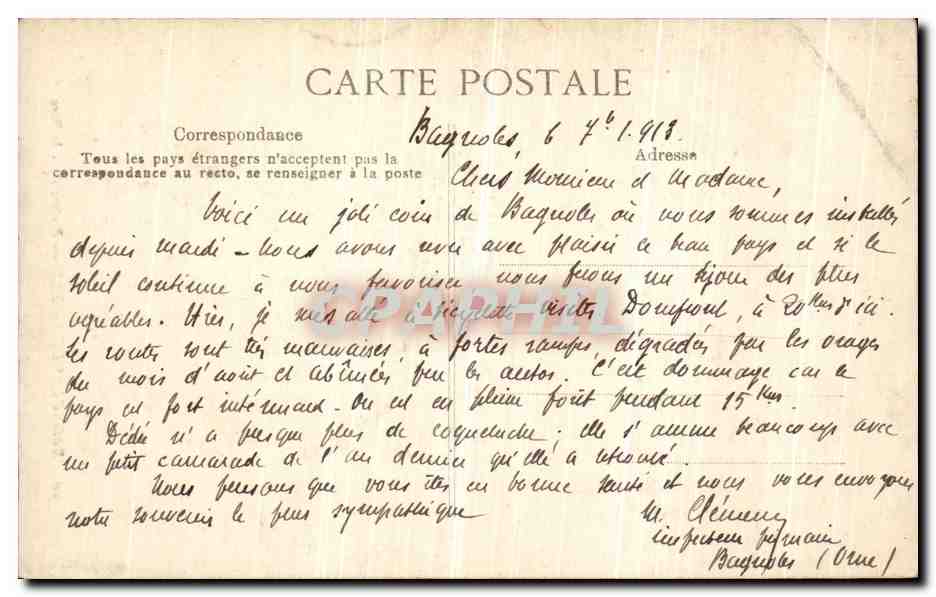 CARTE POSTALE
Correspondance
Tous les pays étrangers n'acceptent pas la
correspondance au recto, se renseigner à la poste
Adresse
Bagnoles, 6 7b 1.913
Chers Monsieur et Madame,
Voici un joli coin de Bagnoles où nous sommes installés
depuis mardi - Nous avons revu avec plaisir ce beau pays et si le
soleil continue à nous favoriser nous ferons un séjour des plus
agréables. Hier, je suis allé à bicyclette visiter Domfront, à 20 Kms d'ici.
Les routes sont très mauvaises, à fortes rampes, dégradées par les orages
du mois d'août et abîmées par les autos. C'est dommage car le
pays est fort intéressant - On est en pleine forêt pendant 15 Kms.
Dédée n'a presque plus de coqueluche ; elle s'amuse beaucoup avec
un petit camarade de l'an dernier qu'elle a retrouvé.
Nous pensons que vous êtes en bonne santé et nous vous envoyons
notre souvenir le plus sympathique
M. Clément
inspecteur primaire
Bagnoles (Orne)
CARAPHIL